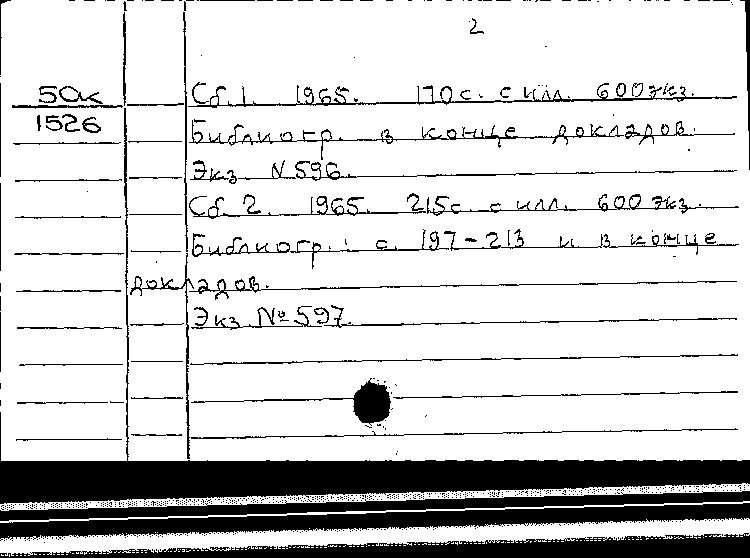 2
50к
1526
Сб. 1. 1965. 170с. с илл. 600 экз.
Библиогр. в конце докладов.
Экз. N 596.
Сб. 2. 1965. 215с. с илл. 600 экз.
Библиогр.: с. 197-213 и в конце
докладов.
Экз. № 597.